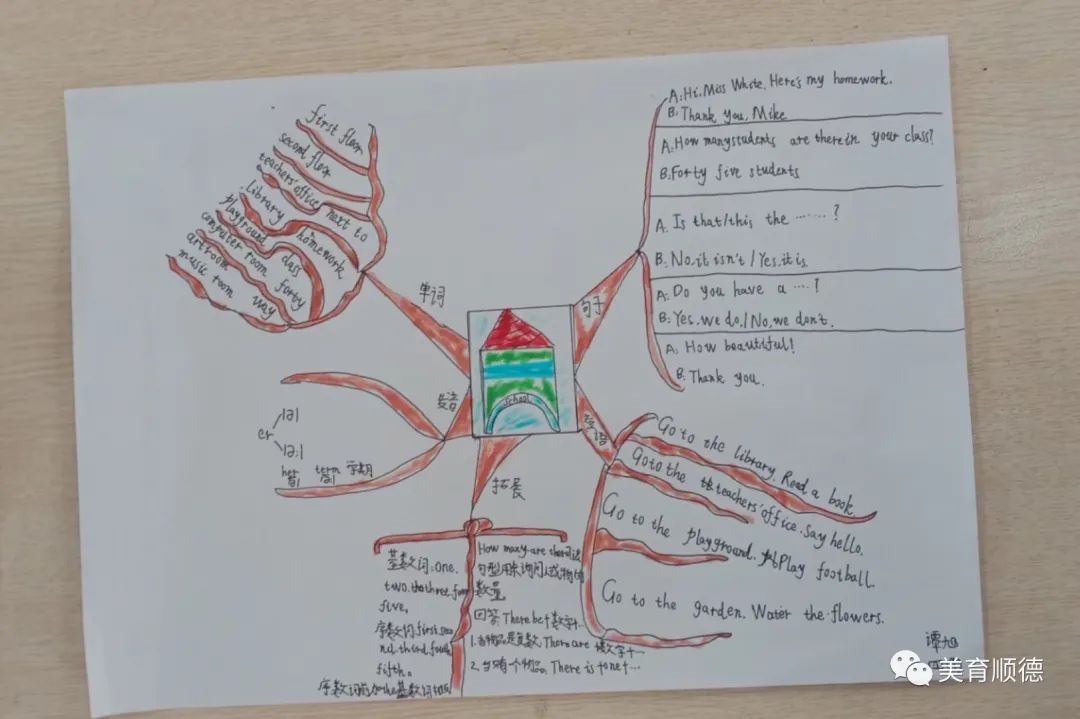 单词
first floor
second floor
teachers' office
next to
library
homework
playground
class
computer room
forty
art room
way
music room
句子
A: Hi, Miss White. Here's my homework.
B: Thank you, Mike
A: How many students are there in your class?
B: Forty five students
A. Is that/this the ……?
B: No, it isn't / Yes, it is
A: Do you have a ….?
B: Yes, we do. / No, we don't.
A: How beautiful!
B: Thank you.
school
发音
er
|ə|
|ə:|
term 学期
短语
Go to the library. Read a book.
Go to the teachers' office. Say hello.
Go to the playground. Play football.
Go to the garden. Water the flowers.
拓展
基数词: One,
two. three. four
five,
序数词 first. seco
nd. third. fourth
fifth。
序数词前加the 基数词
How many are there
句型用来询问人或物的
数量
回答: There be + 数字+…
1. 当物品是复数, There are
2. 当只有个物品, There is + one + …
谭旭
美育顺德